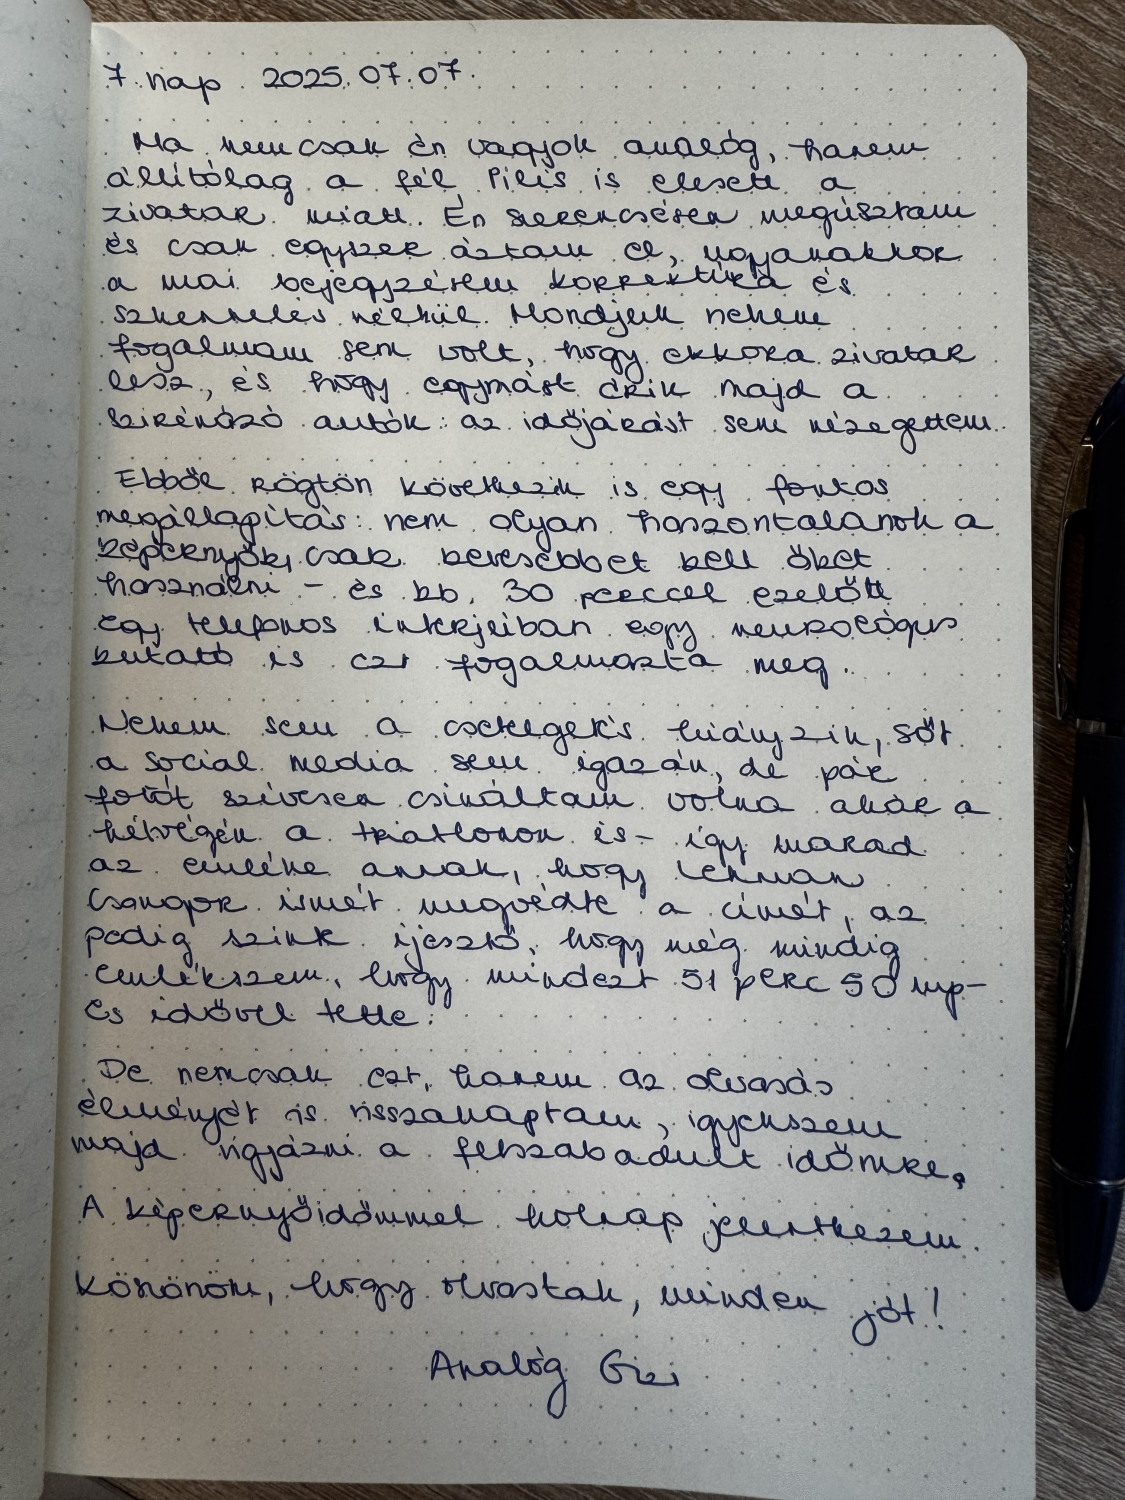 7. nap 2025.07.07.
Ma nemcsak én vagyok analóg, hanem
állítólag a fél Pilis is elesett a
zivatar miatt. Én szerencsésen megúsztam
és csak egyszer áztam el, ugyanakkor
a mai bejegyzésem korrektúra és
szkennelés nélkül. Mondjuk nekem
fogalmam sem volt, hogy ekkora zivatar
lesz, és hogy egymást érik majd a
szirénázó autók: az időjárást sem nézegettem.
Ebből rögtön következik is egy fontos
megállapítás: nem olyan haszontalanok a
képernyők, csak kevesebbet kell őket
használni - és kb. 30 perccel ezelőtt
egy telefonos interjúban egy neurológus
kutató is ezt fogalmazta meg.
Nekem sem a csetelgetés hiányzik, sőt
a social media sem igazán, de pár
fotót szívesen csináltam volna akár a
hétvégén a triatlonon is - így marad
az emléke annak, hogy Lehmann
Csongor ismét megvédte a címét, az
pedig szinte ijesztő, hogy még mindig
emlékszem, hogy mindezt 51 perc 50 mp-
es idővel tette.
De nemcsak ezt, hanem az olvasás
élményét is visszakaptam, igyekszem
majd vigyázni a felszabadult időmre.
A képernyőidőmmel holnap jelentkezem.
Köszönöm, hogy olvastak, minden jót!
Analóg Gizi